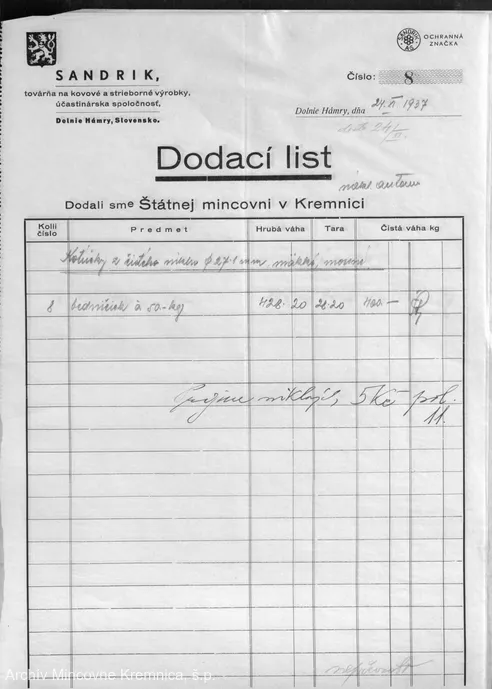 OCHRANNÁ
ZNAČKA
SANDRIK
SANDRIK,
továrňa na kovové a strieborné výrobky,
účastinárska spoločnosť,
Dolnie Hámry, Slovensko.
Číslo: 8
Dolnie Hámry, dňa 24. VI 1937
Dodací list
našim autom
Dodali sme Štátnej mincovni v Kremnici
Kolli číslo Predmet Hrubá váha Tara Čistá váha kg
Kotúčky z čistého niklu φ 27.1 mm mäkké, morené
8 bedničiek à 50.- kg 428.20 28.20 400 —
niklových 5 Kč pol.
11.
Archív Mincovne Kremnica, š.p.